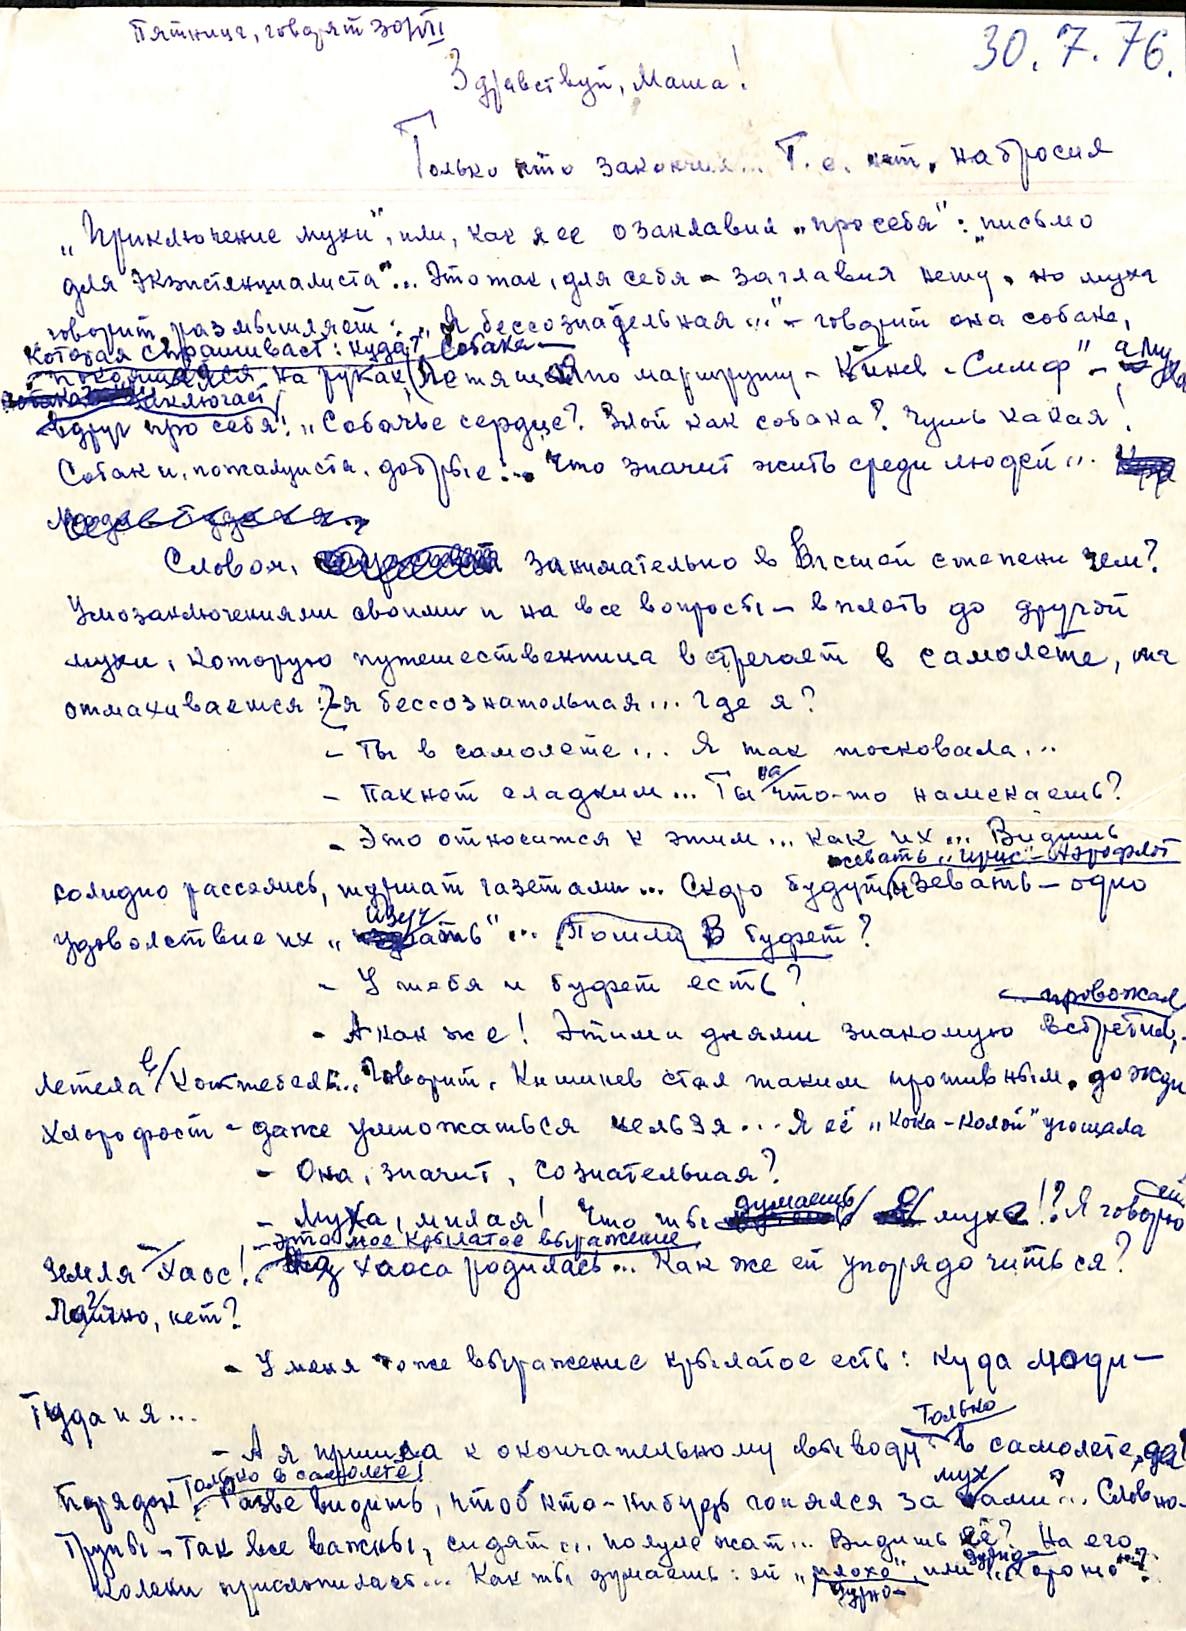 Пятница, говорят 30/VII
30.7.76.
Здравствуй, Маша!
Только что закончил... Т.е. нет, набросил
„Приключение мухи", или, как я ее озаглавил „про себя": „письмо
для экзистенциалиста"... Это так, для себя – заглавия нету, но муха
говорит, размышляет: „Я бессознательная..." – говорит она собаке,
которая спрашивает: куда? Собака –
на руках, летящей по маршруту – Кишинев – Симф" – а муха
заключает
вдруг про себя: „Собачье сердце? Злой как собака? Чушь какая!
Собаки, пожалуйста, добрые... Что значит жить среди людей"...
Словом, занимательно в высшей степени чем?
Умозаключениями своими и на все вопросы – вплоть до другой
мухи, которую путешественница встречает в самолете, та
отмахивается: – я бессознательная... Где я?
– Ты в самолете... Я так тосковала...
– Пахнет сладким... Ты на что-то намекаешь?
– Это относится к этим... как их... Видишь
жевать „ирис" – Аэрофлот
солидно расселись, шуршат газетами... Скоро будут зевать – одно
удовольствие их „изучать"... Пошли в буфет?
– У тебя и буфет есть?
– А как же! Этими днями знакомую встретила,
провожал
летела в Коктебель... Говорит, Кишинев стал таким противным, дожди
хлорофост – даже умножаться нельзя... Я её „Кока-колой" угощала
– Она, значит, сознательная?
– Муха, милая! Что ты думаешь о мухе!? Я говорю ей
– это мое крылатое выражение
земля – хаос! Из хаоса родилась... Как же ей упорядочиться?
Ладно, нет?
– У меня тоже выражение крылатое есть: куда люди –
туда и я...
– А я пришла к окончательному выводу – только в самолете, да?
только в самолете!
порядок. Разве видишь, чтоб кто-нибудь гонялся за мухами?... Словно
трупы – так все важны, сидят... полулежат... Видишь её? На его
колени прислонилась... Как ты думаешь: ей „плохо", или „хорошо"?
дурно –